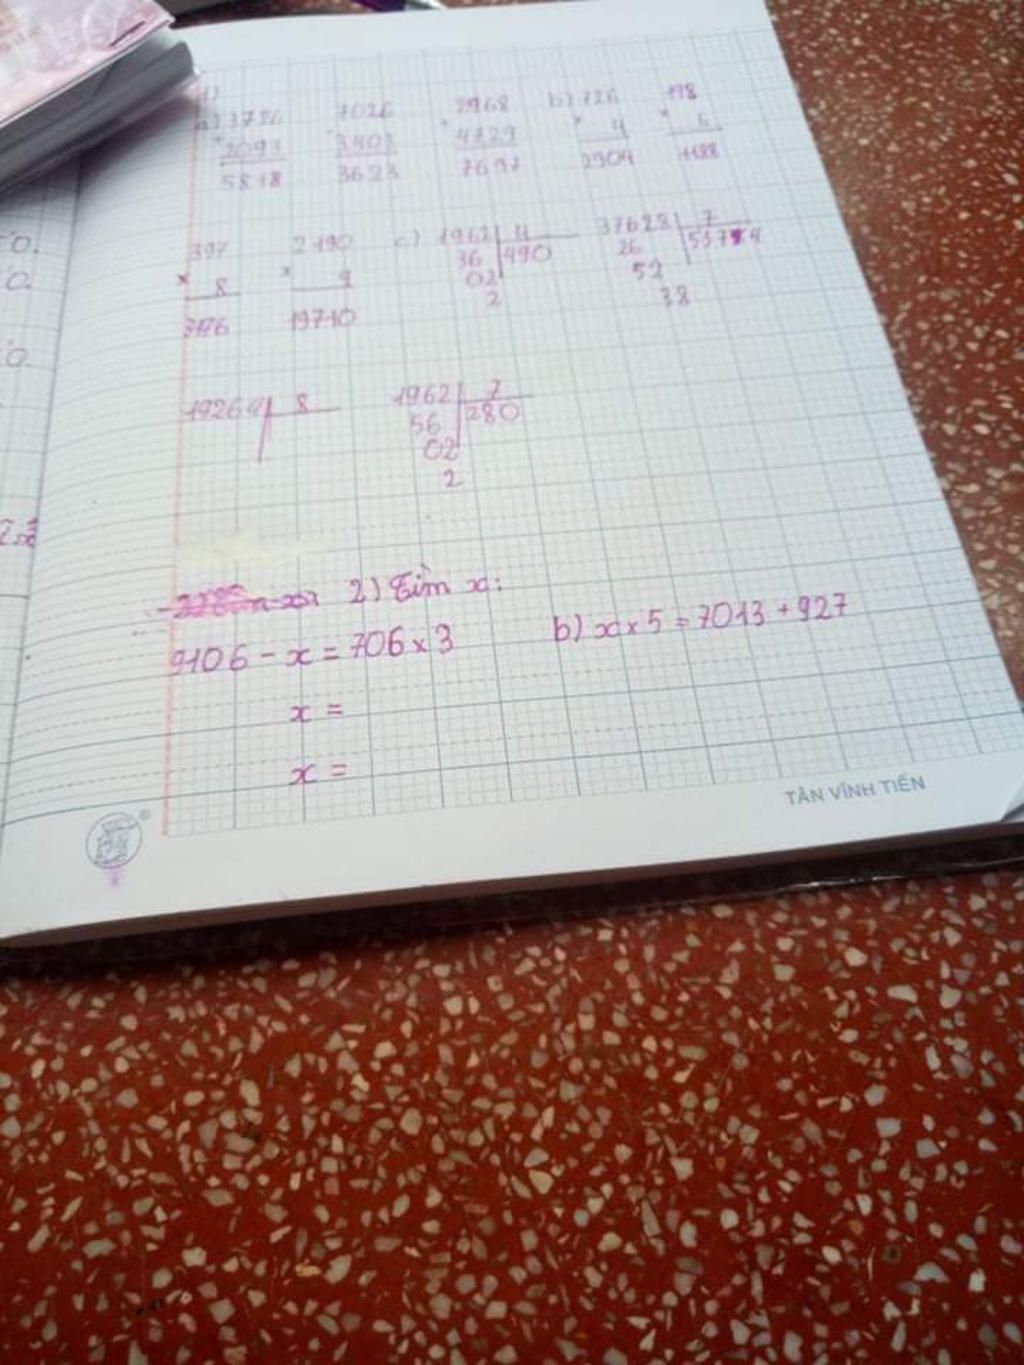 1)
a) 3726 7026 2968 b) 726 198
+ 2093 - 3403 + 4729 × 4 × 6
5818 3623 7697 2904 1188
397 2190 c) 1962 4 37628 7
× 8 × 9 36 490 26 5374
3176 19710 02 52
2 38
19264 8 1962 7
56 280
02
2
2) Tìm x:
9106 - x = 706 × 3 b) x × 5 = 7013 + 927
x =
x =
TÂN VĨNH TIẾN